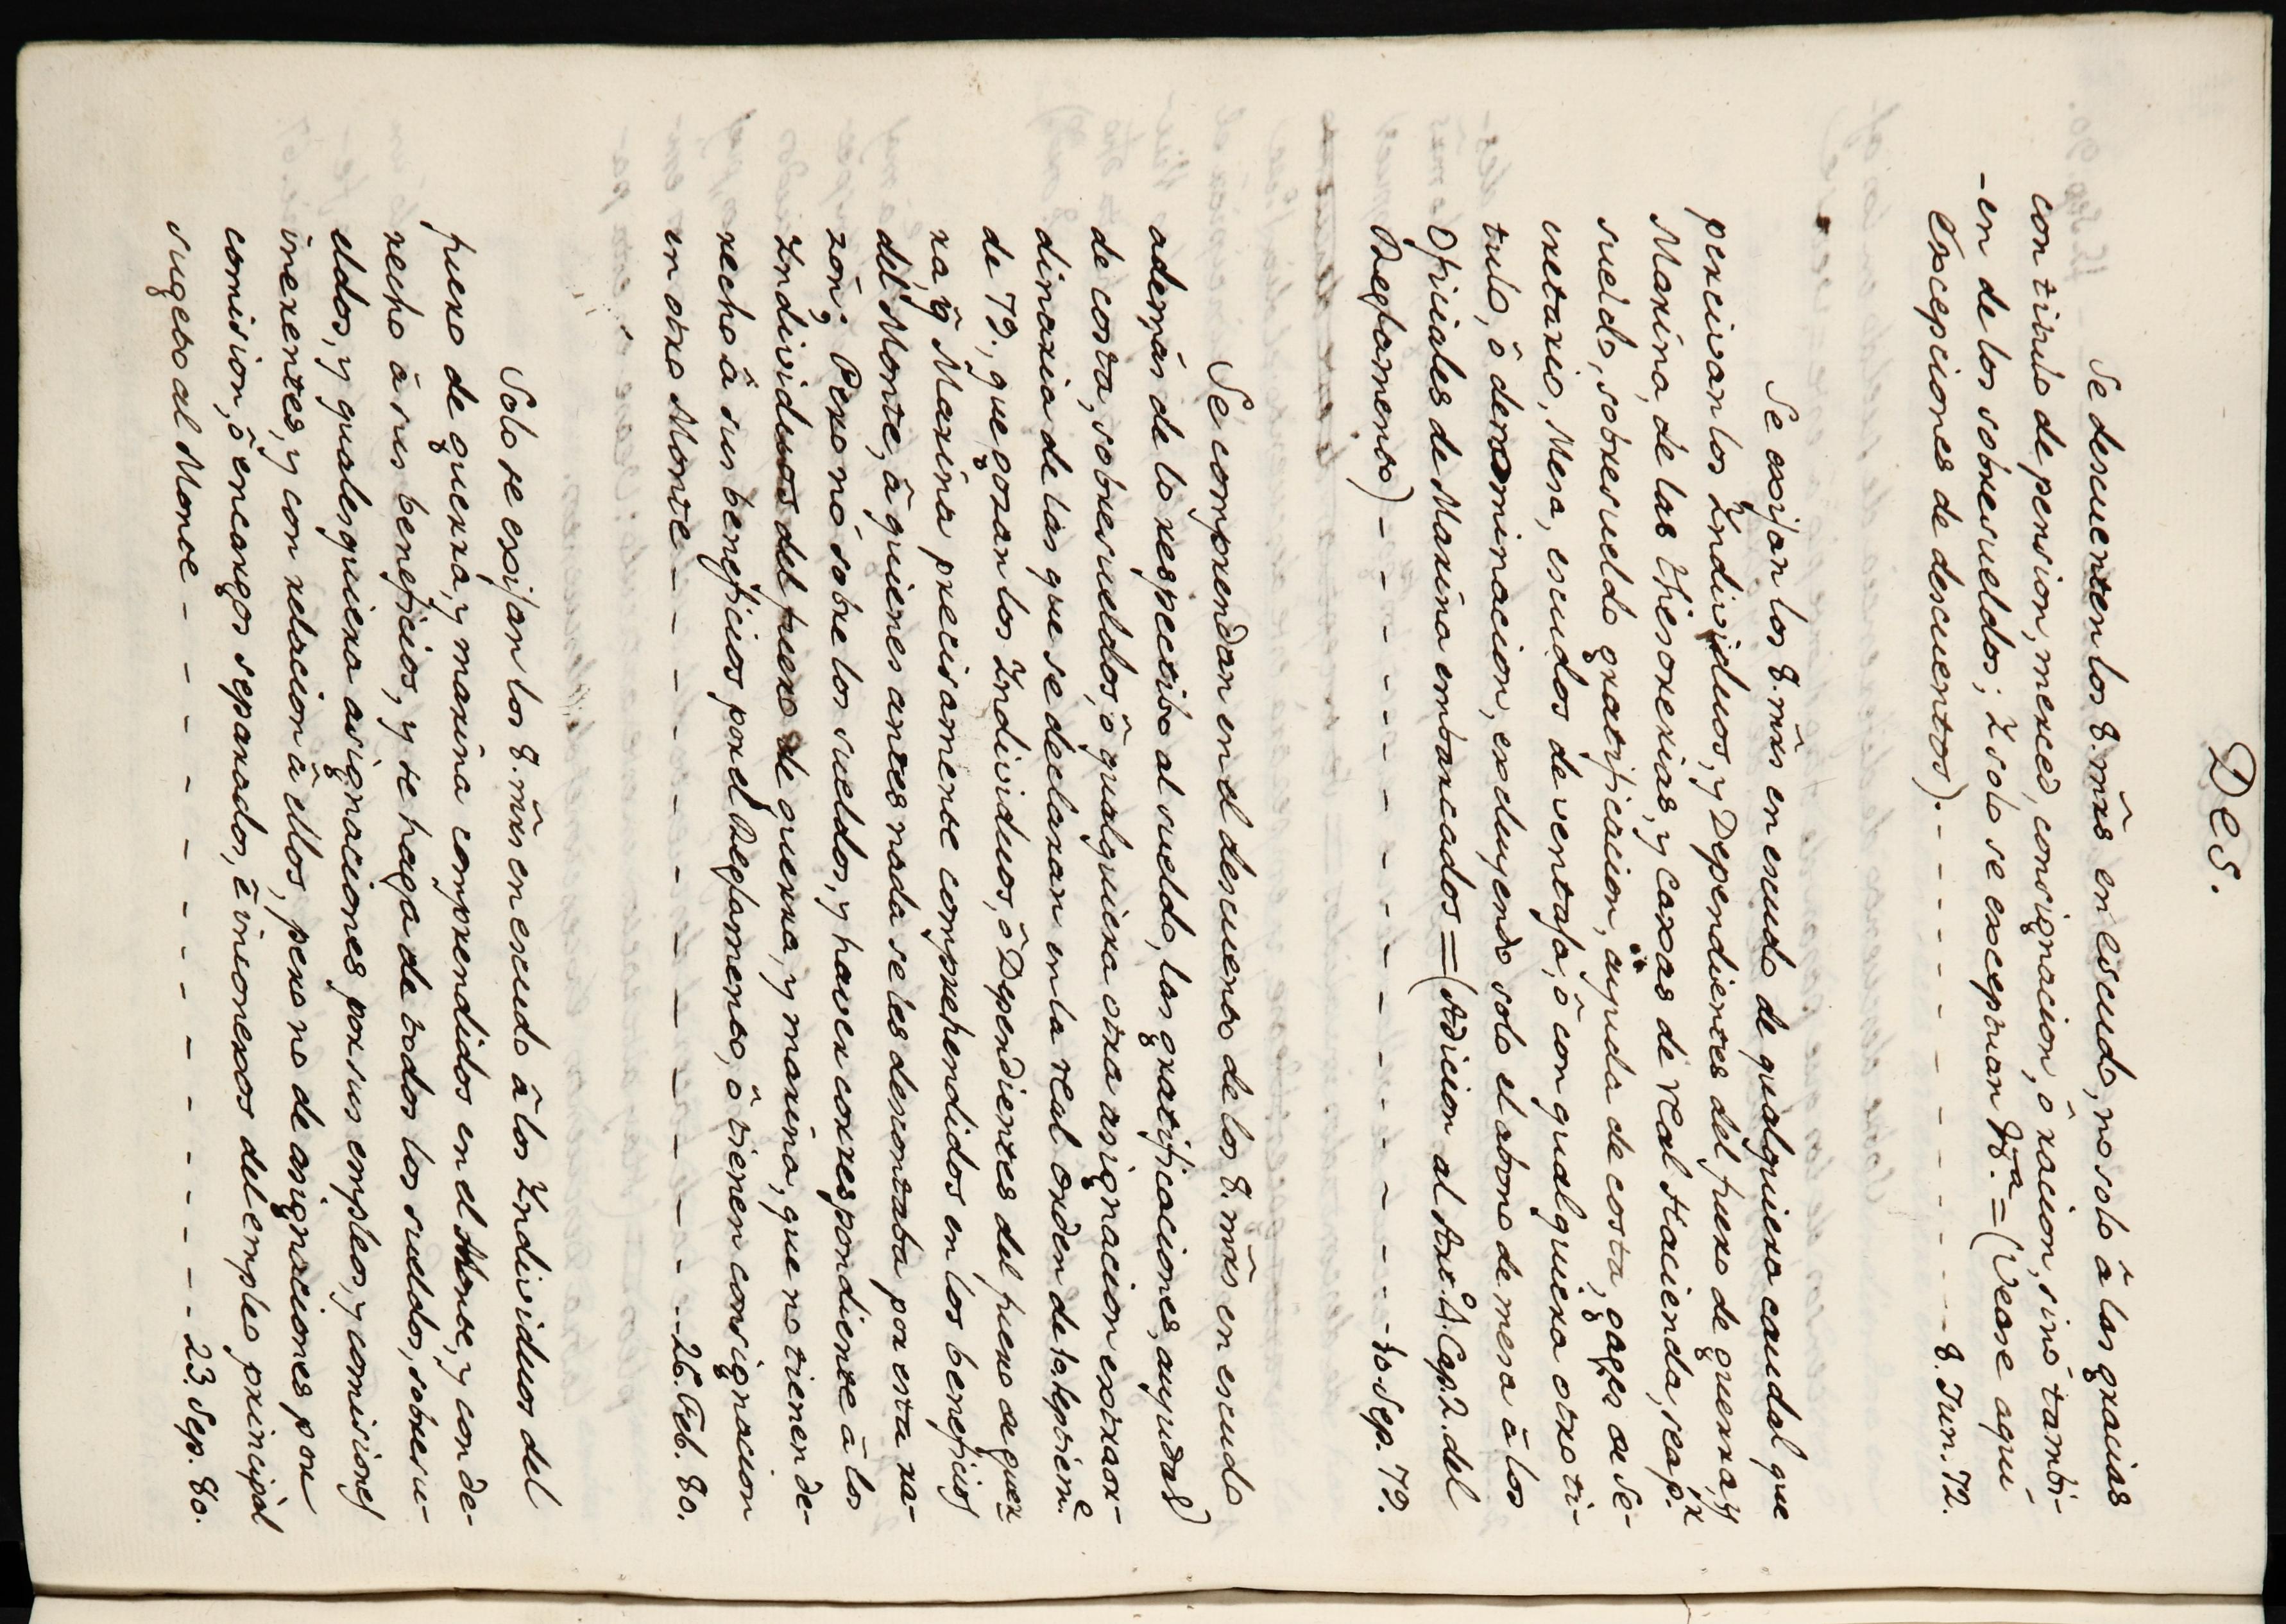 Des.
Se descuenten los 8. mr̃s en escudo, no solo â las gracias
con titulo de pension, merced, consignacion, ô racion, sinó tambi-
-en de los sobresueldos; Y solo se exceptuan Vª. = (Vease aqui
Excepciones de descuentos). - - - - - - - - - - - 8. Jun. 72.
Se exijan los 8. mr̃s en escudo de qualquiera caudal que
percivan los Individuos, y Dependientes del fuero de guerra, y
Marina, de las Thesorerias, y Caxas de real Hacienda, sea p.r
sueldo, sobresueldo, gratificacion, ayuda de costa, gages de Se-
cretario, Mesa, escudos de ventaja, ô con qualquiera otro ti-
tulo, ô denominacion, excluyendo solo el abono de mesa â los
Oficiales de Marina embarcados = (Adicion al Art.º 1. Cap. 2. del
Reglamento) - - - - - - - - - - - - - - 10. Sep. 79.
Se comprendan en el descuento de los 8. mr̃s en escudo
ademas de lo respectivo al sueldo, las gratificaciones, ayudas
de costa, sobresueldos, ô qualquiera otra asignacion extraor-
dinaria de las que se declaran en la real orden de 10. Septiem.e
de 79., que gozan los Individuos, ô Dependientes del fuero de guer
ra, y Marina precisamente comprehendidos en los beneficios
del Monte, â quienes antes nada se les descontaba por esta ra-
zon; Pero nó sobre los sueldos, y haver correspondiente â los
Individuos del fuero de guerra, y marina, que no tienen de-
recho â sus beneficios por el Reglamento, ô tienen consignacion
en otro Monte - - - - - - - - - - - - - 26. Feb. 80.
Solo se exijan los 8. mr̃s en escudo â los Individuos del
fuero de guerra, y marina comprendidos en el Monte, y con de-
recho â sus beneficios, y se haga de todos los sueldos, sobresu-
eldos, y qualesquiera asignaciones por sus empleos, y comisiones
inerentes, y con relacion â ellos, pero no de asignaciones por
comision, ô encargos separados, ê inconexos del empleo principal
sugeto al Monte - - - - - - - - - - - - - 23. Sep. 80.